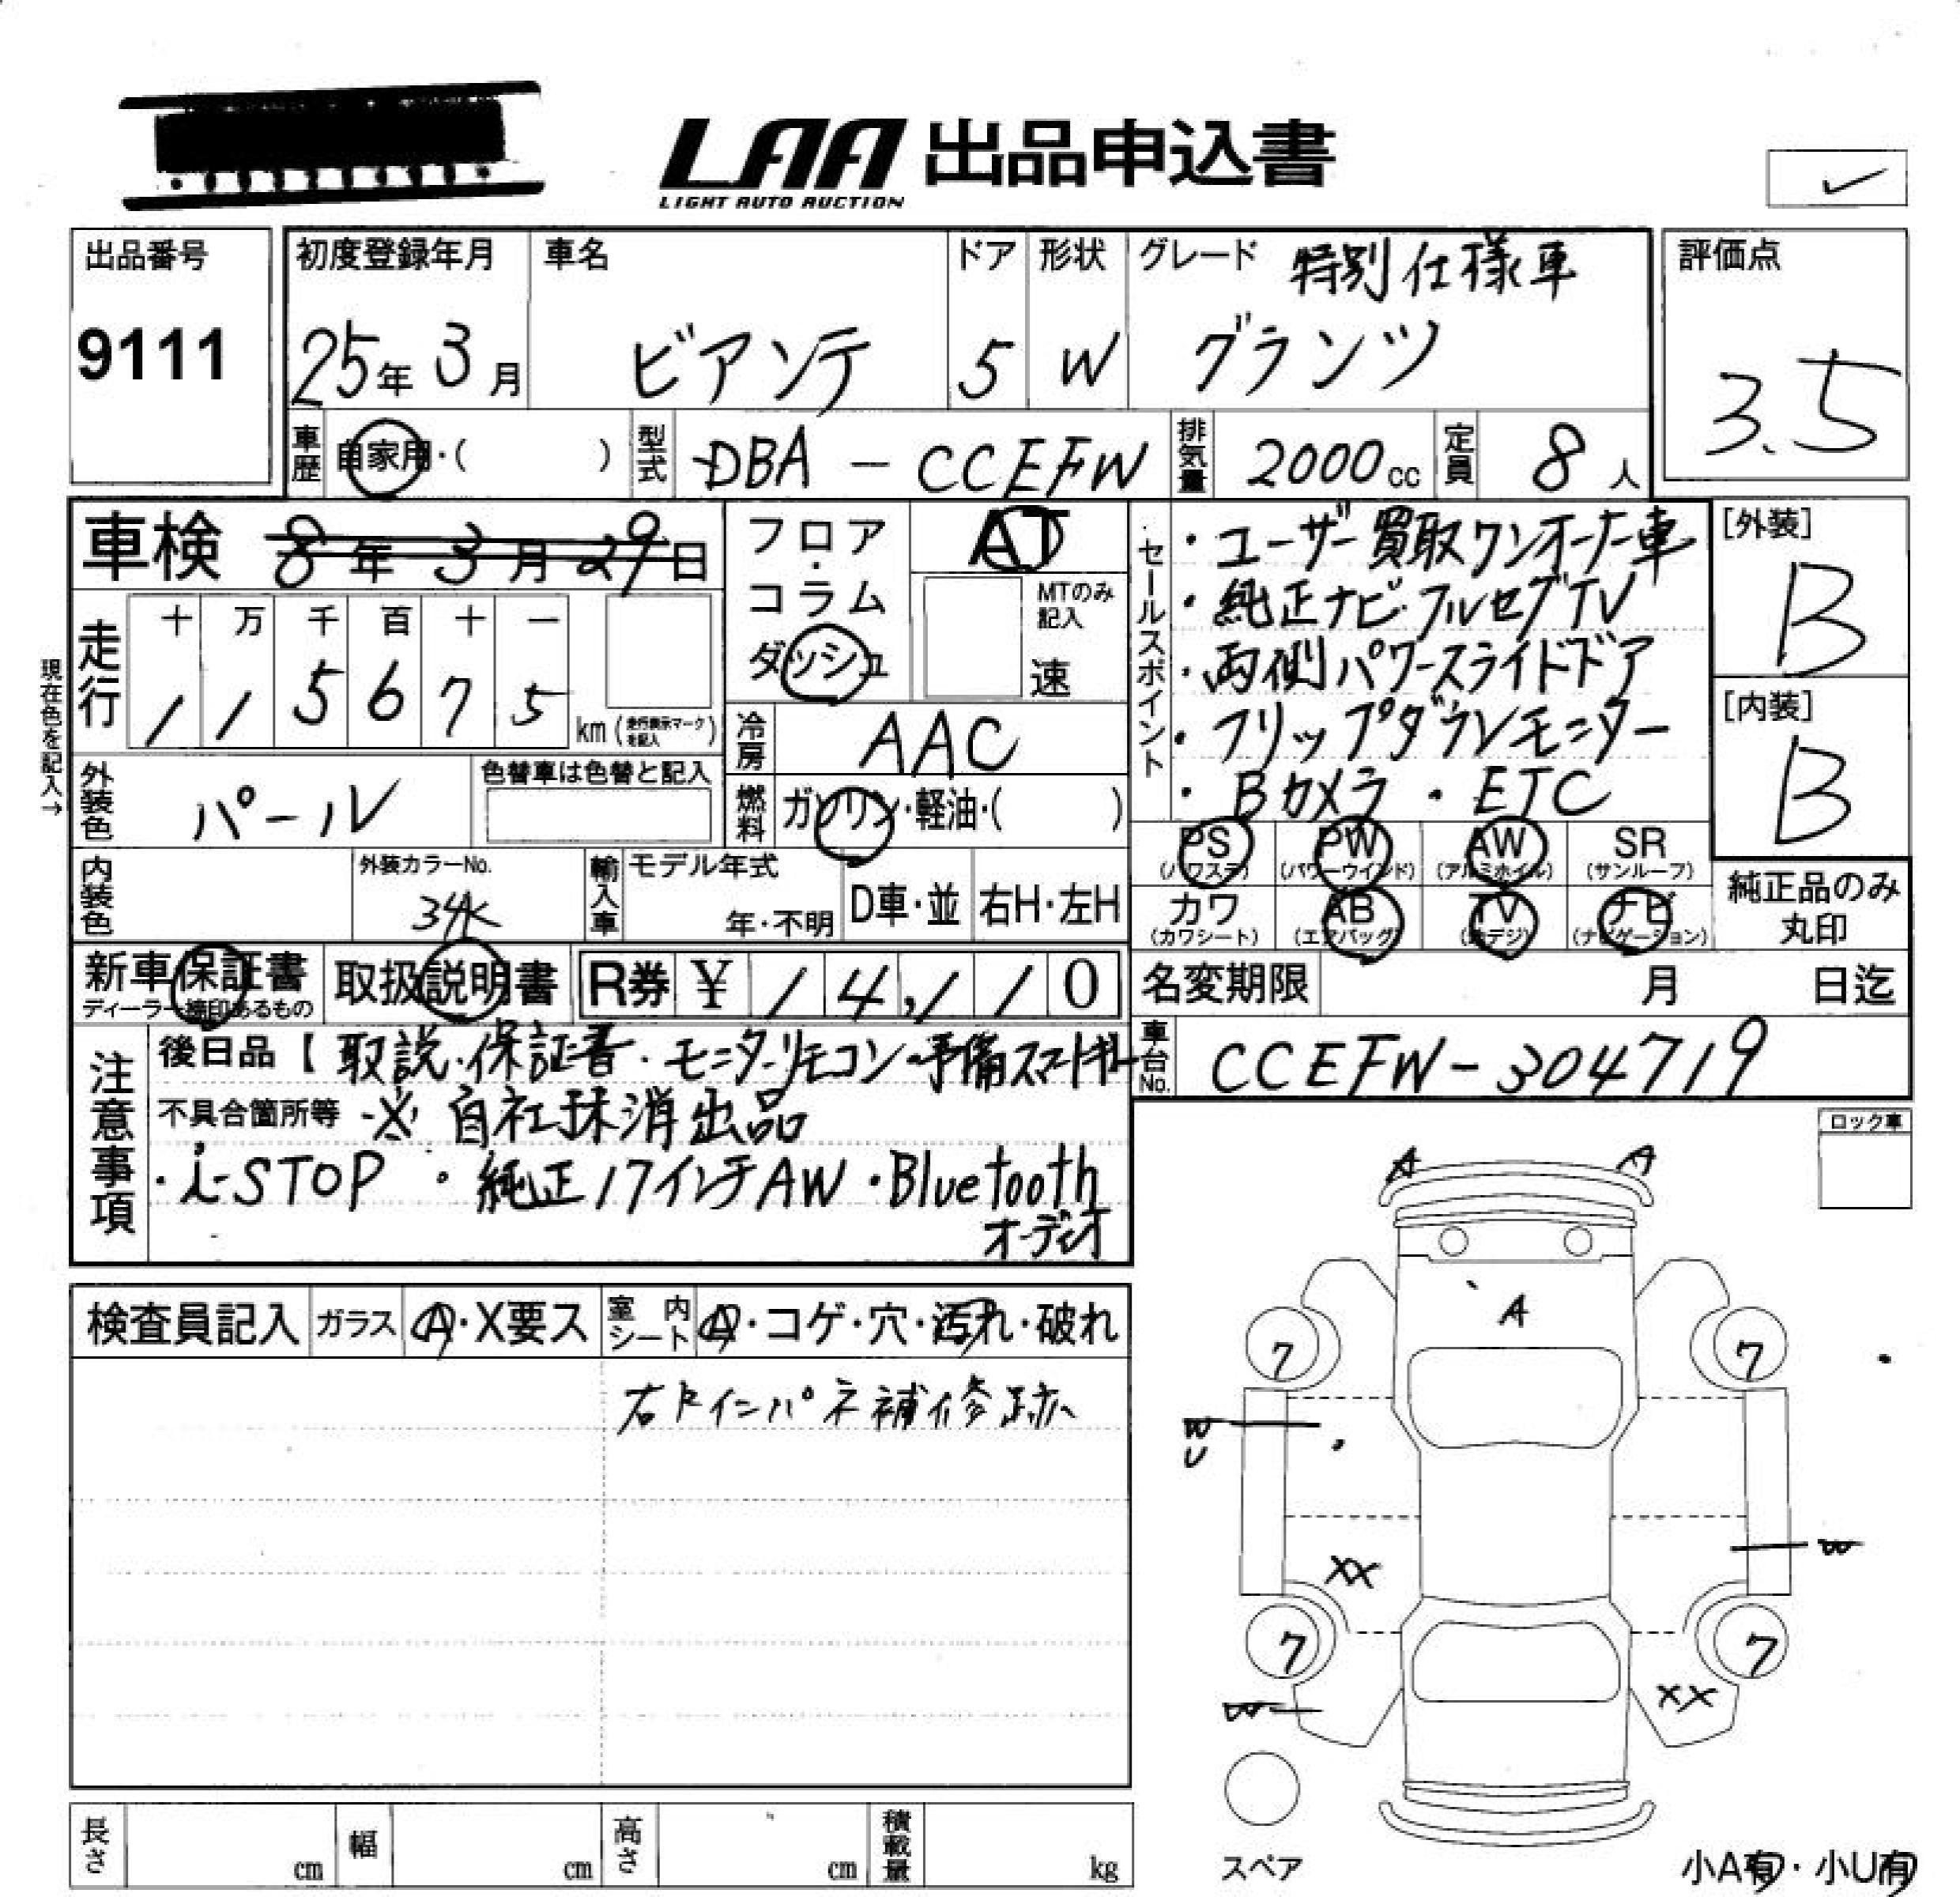 LAA 出品申込書
LIGHT AUTO AUCTION
出品番号
9111
初度登録年月
25年 3月
車名
ビアンテ
ドア
5
形状
W
グレード 特別仕様車
グランツ
評価点
3.5
車歴 自家用・( )
型式 DBA - CCEFW
排気量 2000cc
定員 8人
車検 8年 3月 29日
走行 十 万 千 百 十 一
1 1 5 6 7 5 km (走行表示マークを記入)
現在色を記入→
フロア・コラム
ダッシュ
AT
MTのみ記入
速
冷房 AAC
燃料 ガソリン・軽油・( )
外装色 パール
色替車は色替と記入
内装色
外装カラーNo.
34K
輸入車 モデル年式
年・不明
D車・並 右H・左H
セールスポイント
・ユーザー買取ワンオーナー車
・純正ナビ・フルセグTV
・両側パワースライドドア
・フリップダウンモニター
・Bカメラ ・ETC
[外装]
B
[内装]
B
PS (パワステ)
PW (パワーウインド)
AW (アルミホイル)
SR (サンルーフ)
カワ (カワシート)
AB (エアバッグ)
TV (地デジ)
ナビ (ナビゲーション)
純正品のみ
丸印
新車保証書
ディーラー捺印あるもの
取扱説明書
R券 ¥ 14,110
名変期限 月 日迄
車台No. CCEFW-304719
注意事項
後日品【 取説・保証書・モニターリモコン・予備スマートキー
不具合箇所等 ※自社抹消出品
・i-STOP ・純正17インチAW ・Bluetooth
オーディオ
ロック車
検査員記入 ガラス A・X要ス 室内シート A・コゲ・穴・汚れ・破れ
右Fインパネ補修跡
A A
A
7 7
W
U
W
XX
7 7
W
XX
スペア
小A有・小U有
長さ cm 幅 cm 高さ cm 積載量 kg